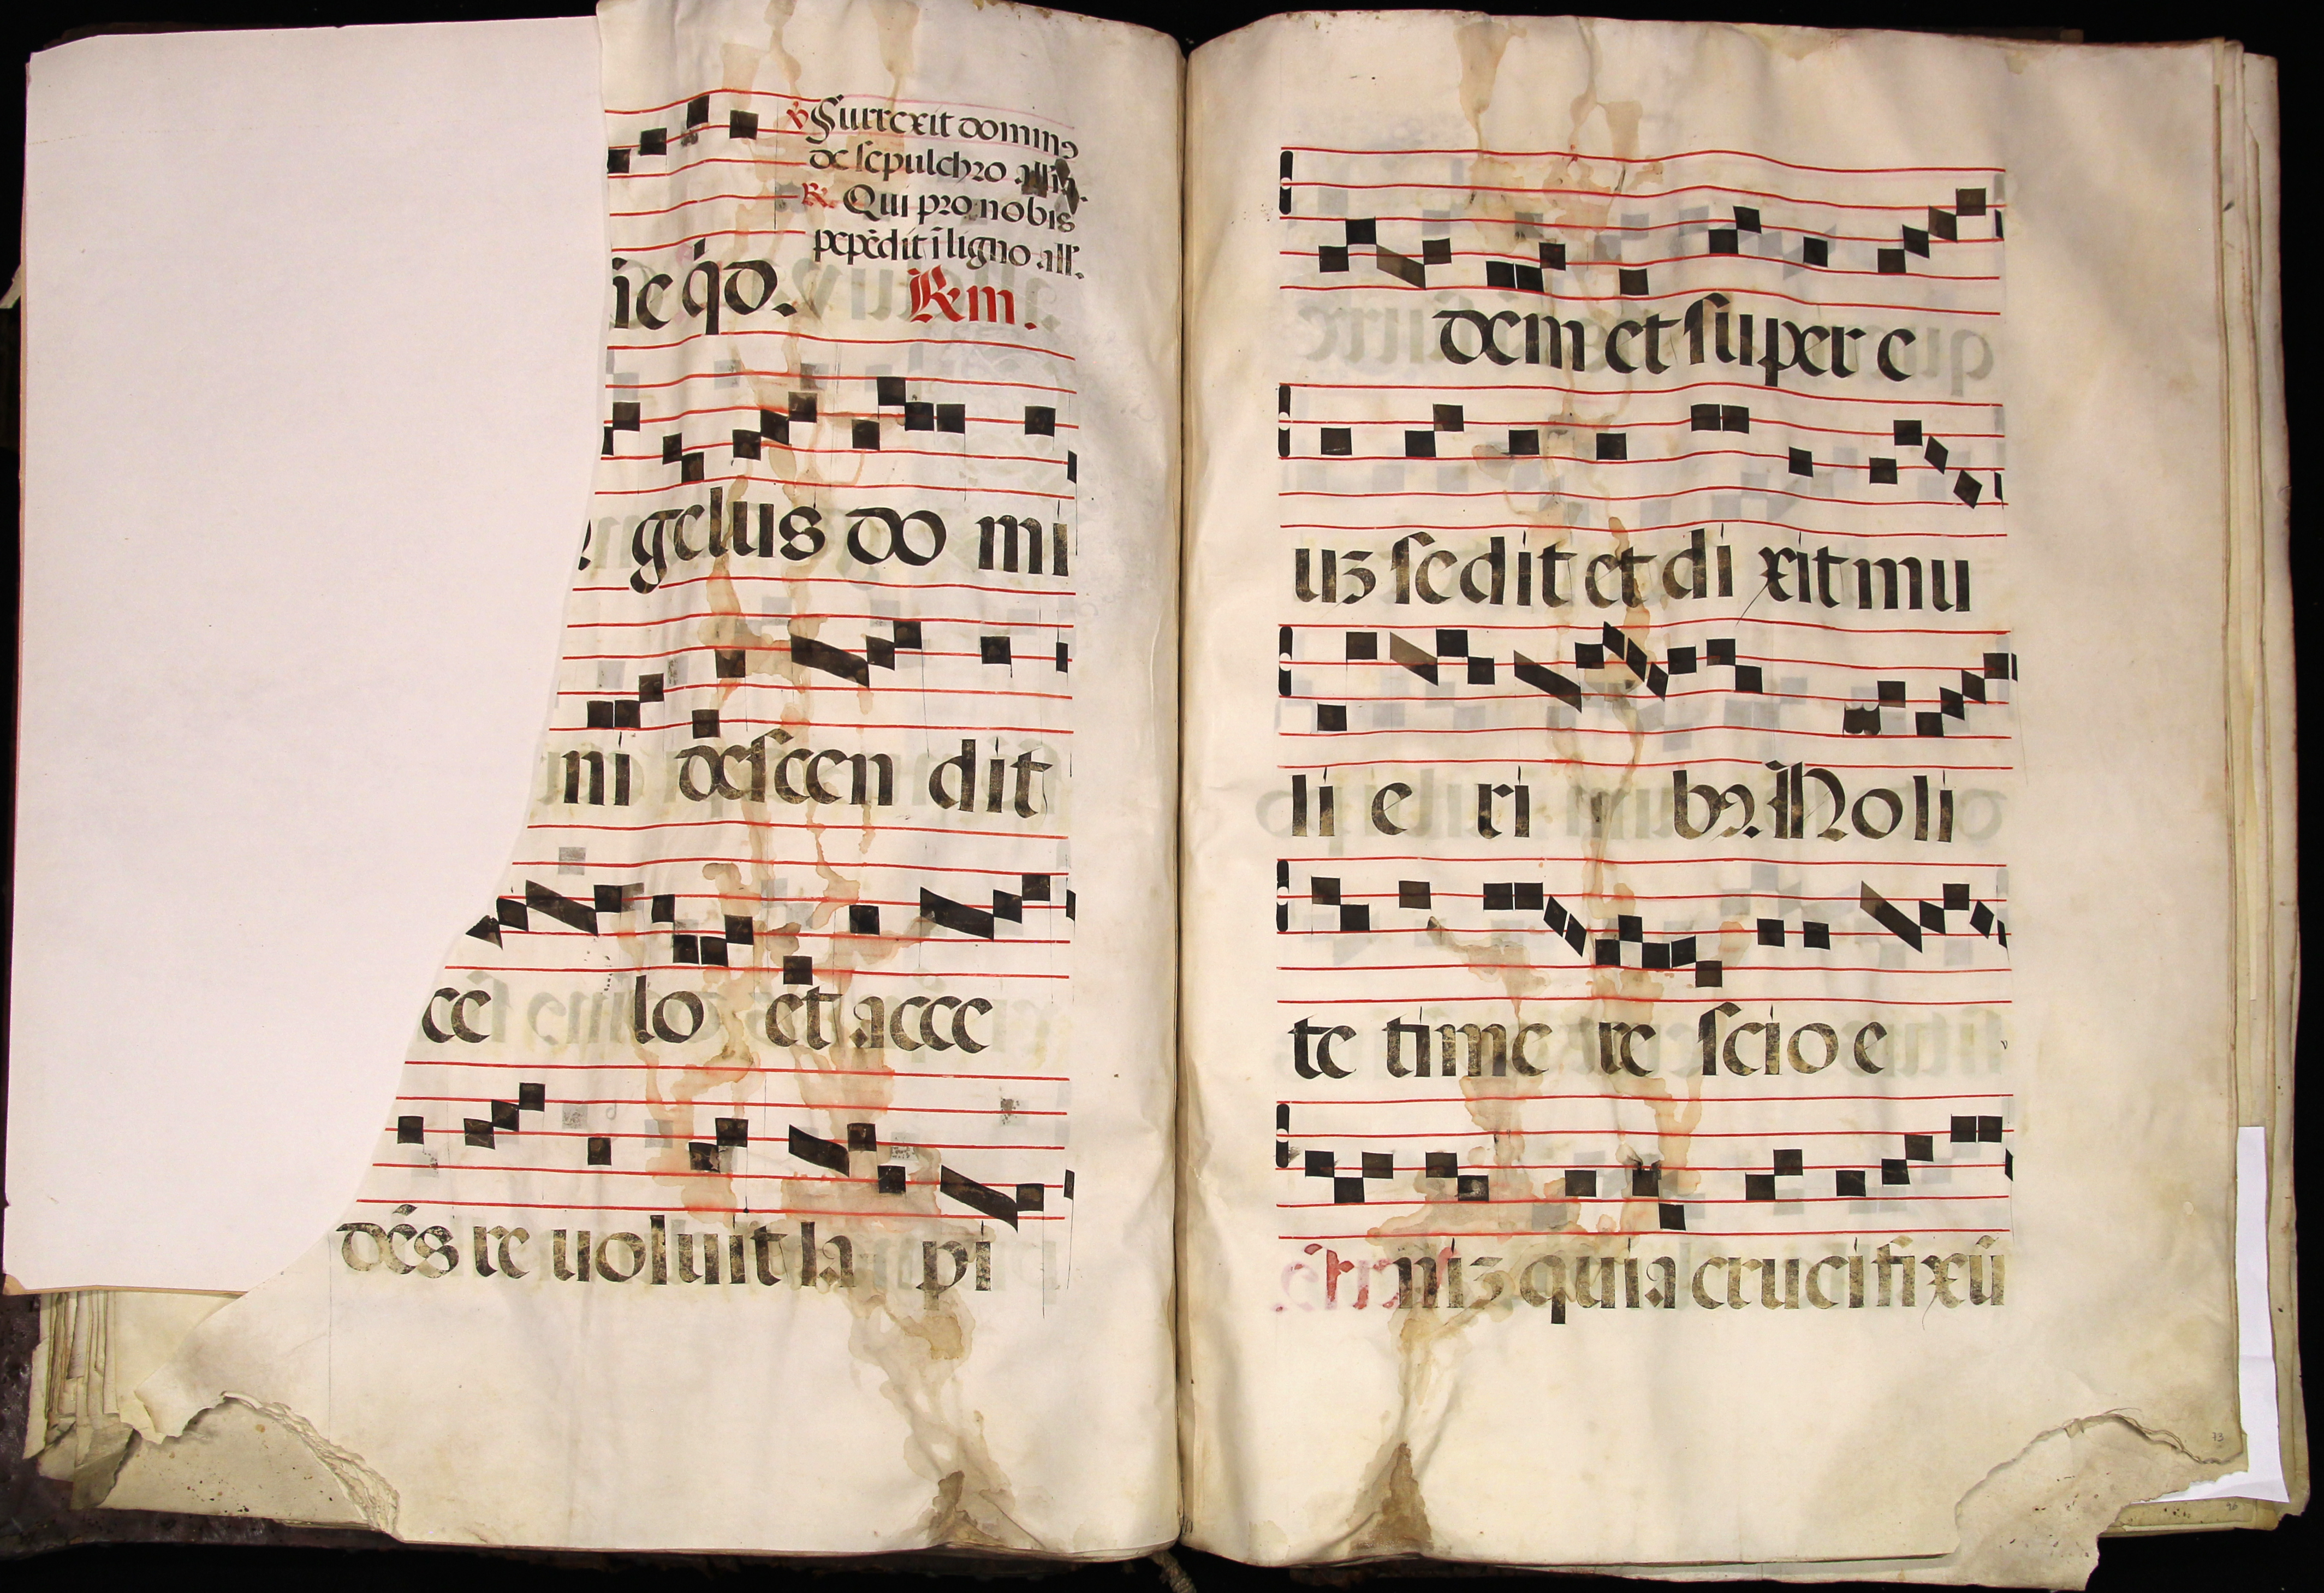 ℣ Surrexit dominꝰ
de sepulchro all'ia.
℟. Qui pro nobis
pepēdit ī ligno all'.
sie q̄d. ℟m.
gelus do mi
ni descen dit
ce lo et acce
dēs re uoluit la pi
dem et super e
uꝫ sedit et di xit mu
li e ri bꝰ. Noli
te time re scio e
niꝫ quia crucifixū
73